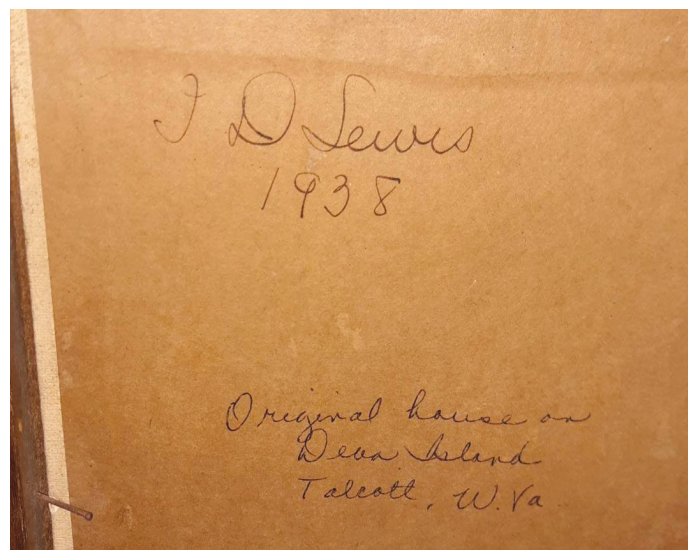 D Lewis
1938
Original house on
Island
Talcott, W. Va